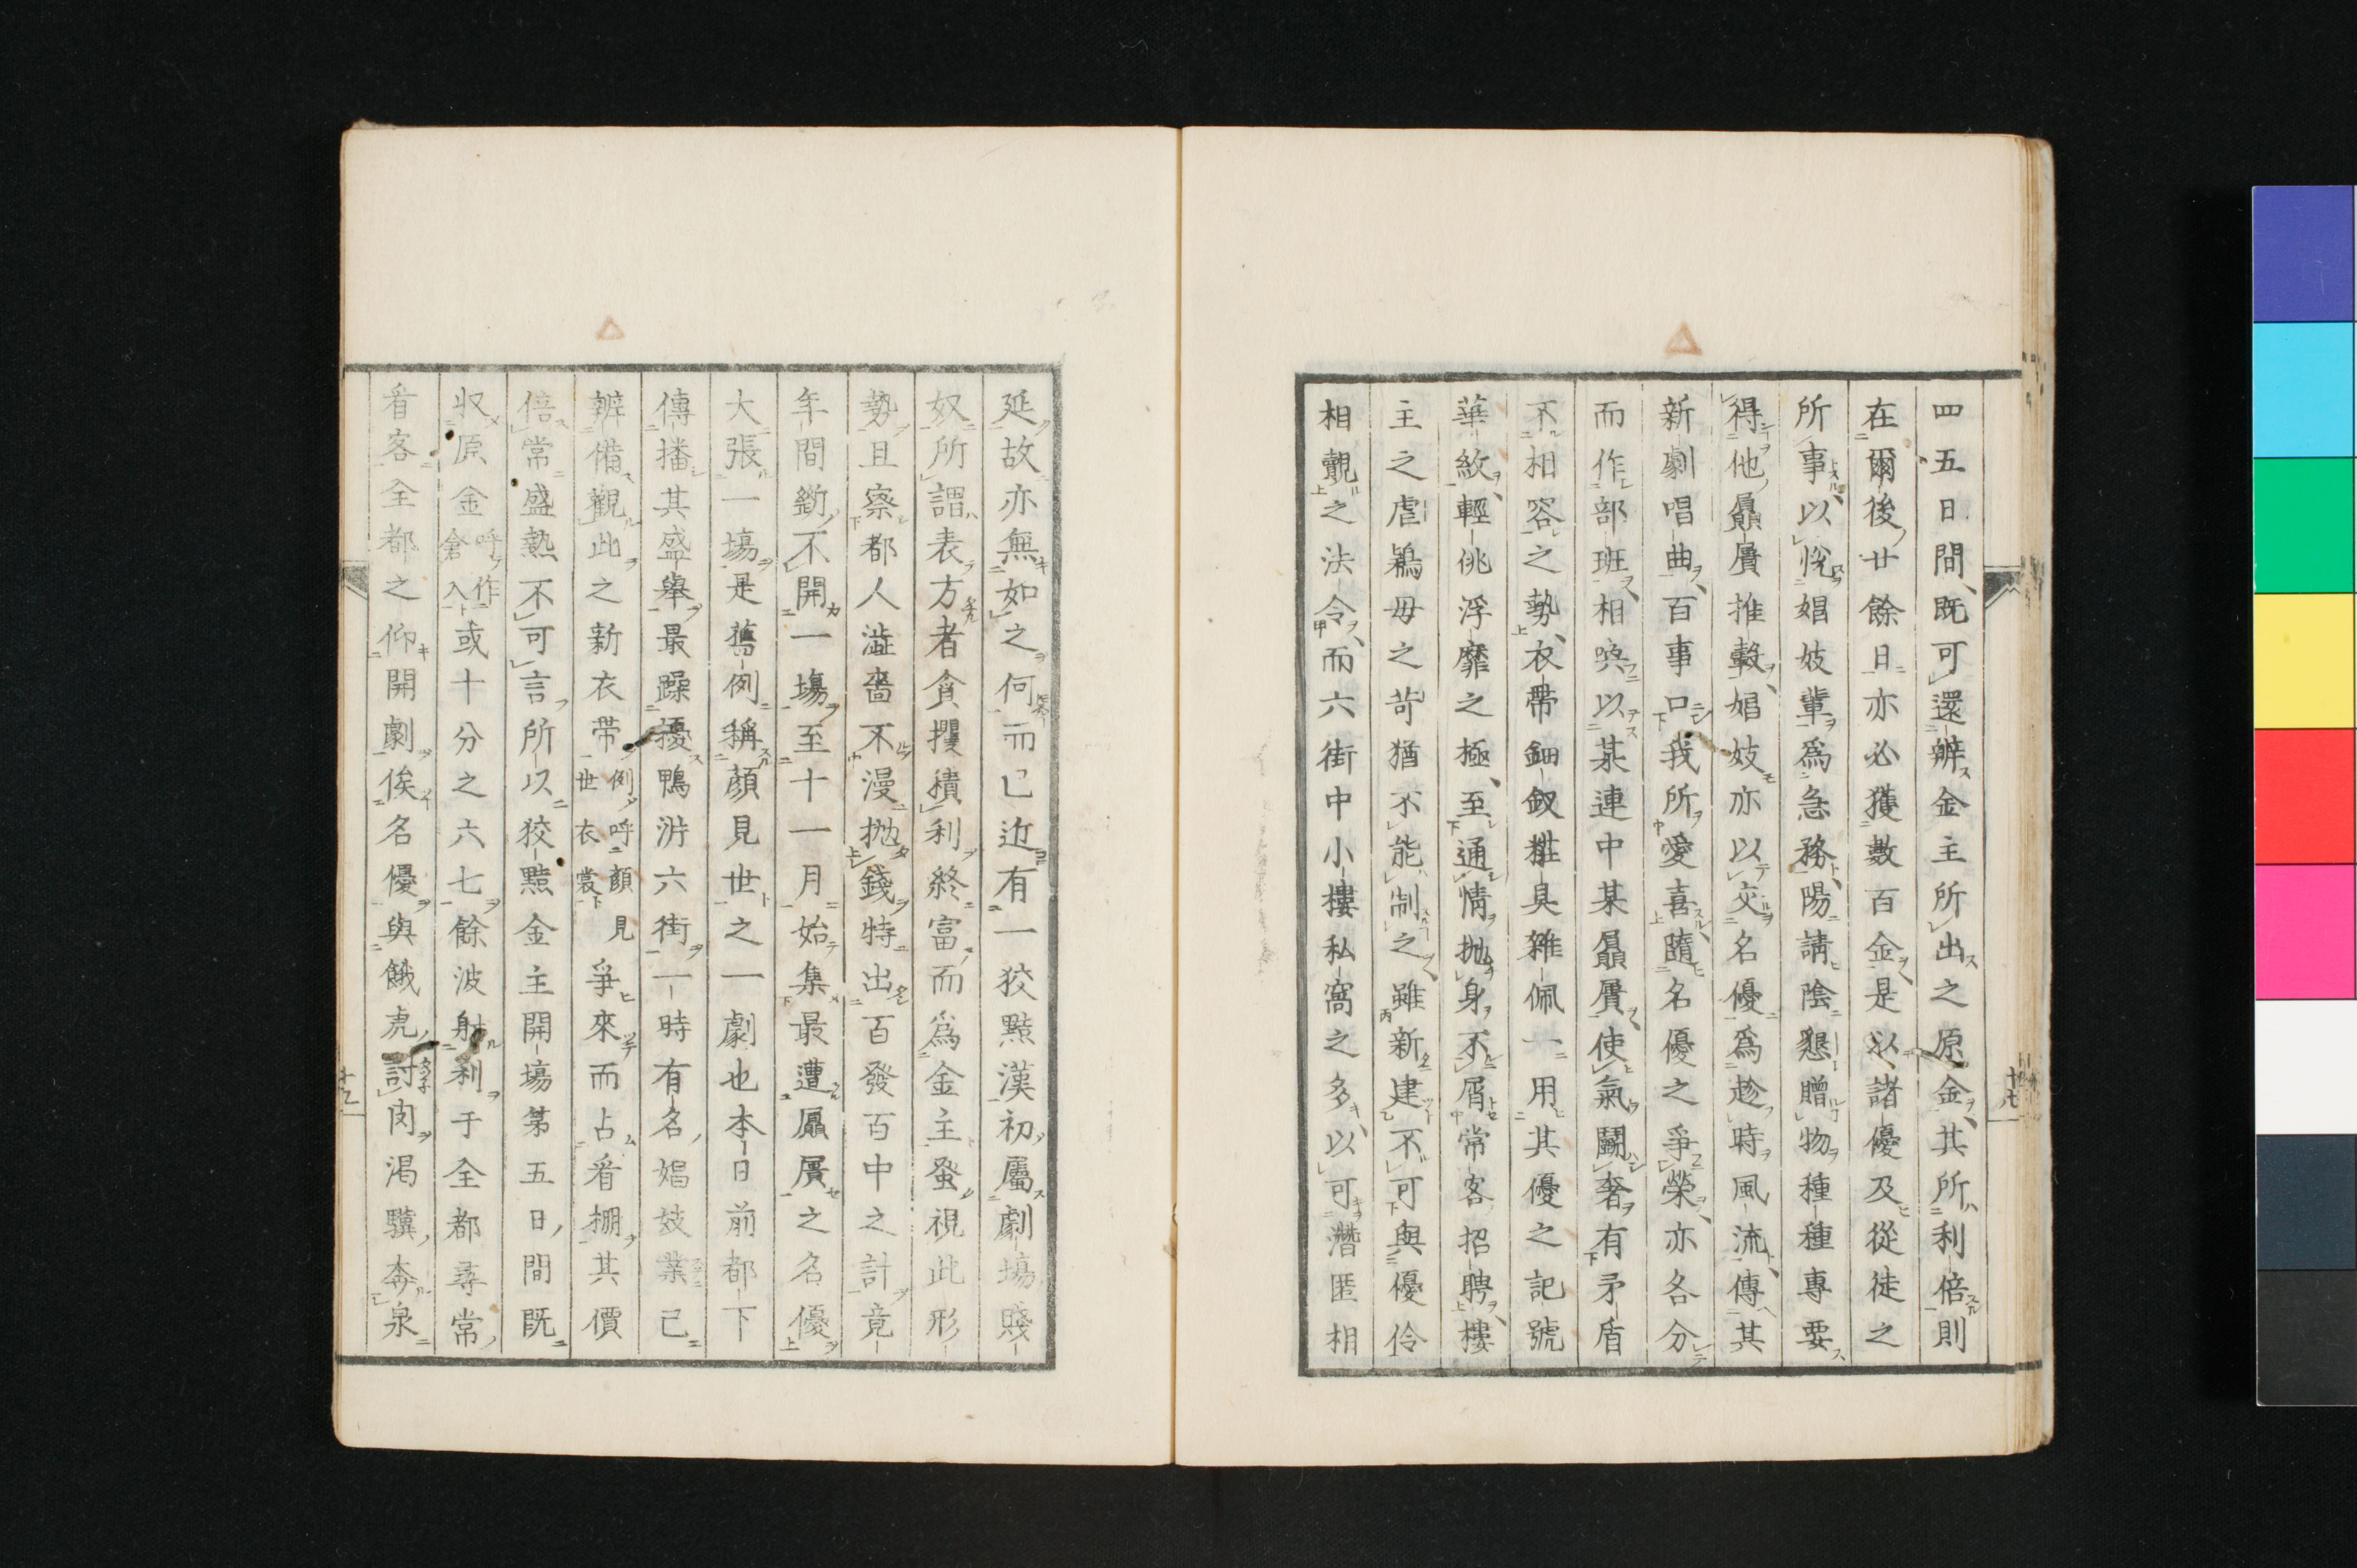 四五日間既可還辨金主所出之原金其所利倍則
在爾後廿餘日亦必獲數百金是以諸優及從徒之
所事以悅娼妓輩爲急務陽請陰懇贈物種種專要
得他贔屓推轂娼妓亦以交名優爲趁時風流傳其
新劇唱曲百事口我所愛喜隨名優之爭榮亦各分
而作部班相喚以某連中某贔屓使氣鬭奢有矛盾
不相容之勢衣帶鈿釵粧具雜佩一用其優之記號
華紋輕佻浮靡之極至通情抛身不屑常客招聘樓
主之虐鴇母之苛猶不能制之雖新建不可與優伶
相覿之法令而六街中小樓私窩之多以可潛匿相
延故亦無如之何而已近有一狡黠漢初屬劇場賤
奴所謂表方者貪攫積利終富而爲金主蚤視此形
勢且察都人澁嗇不漫抛錢特出百發百中之計竟
年間鎖不開一場至十一月始集最遭贔屓之名優
大張一場是舊例稱顏見世之一劇也本日前都下
傳播其盛舉最躁擾鴨涯六街一時有名娼妓業已
辨備觀此之新衣帶例呼顏見世衣裳爭來而占看棚其價
倍常盛熱不可言所以狡黠金主開場第五日間既
收原金呼作倉入或十分之六七餘波射利于全都尋常
看客全都之仰開劇俟名優與餓虎討肉渴驥奔泉
十七